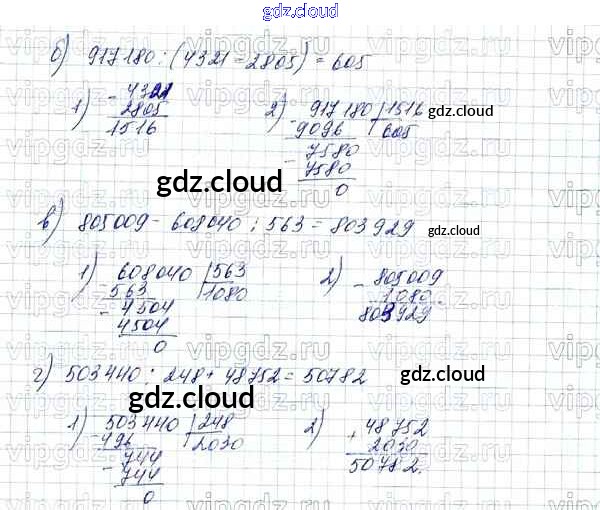 gdz.cloud
б) 917180 : (4321 - 2805) = 605
1) - 4321
2805
1516
2) - 917180 | 1516
9096 | 605
- 7580
7580
0
gdz.cloud
gdz.cloud
в) 805009 - 608040 : 563 = 803929
gdz.cloud
1) - 608040 | 563
563 | 1080
- 4504
4504
0
2) - 805009
1080
803929
gdz.cloud
г) 503440 : 248 + 48752 = 50782
gdz.cloud
gdz.cloud
1) - 503440 | 248
496 | 2030
- 744
744
0
2) + 48752
2030
50782.
gdz.cloud